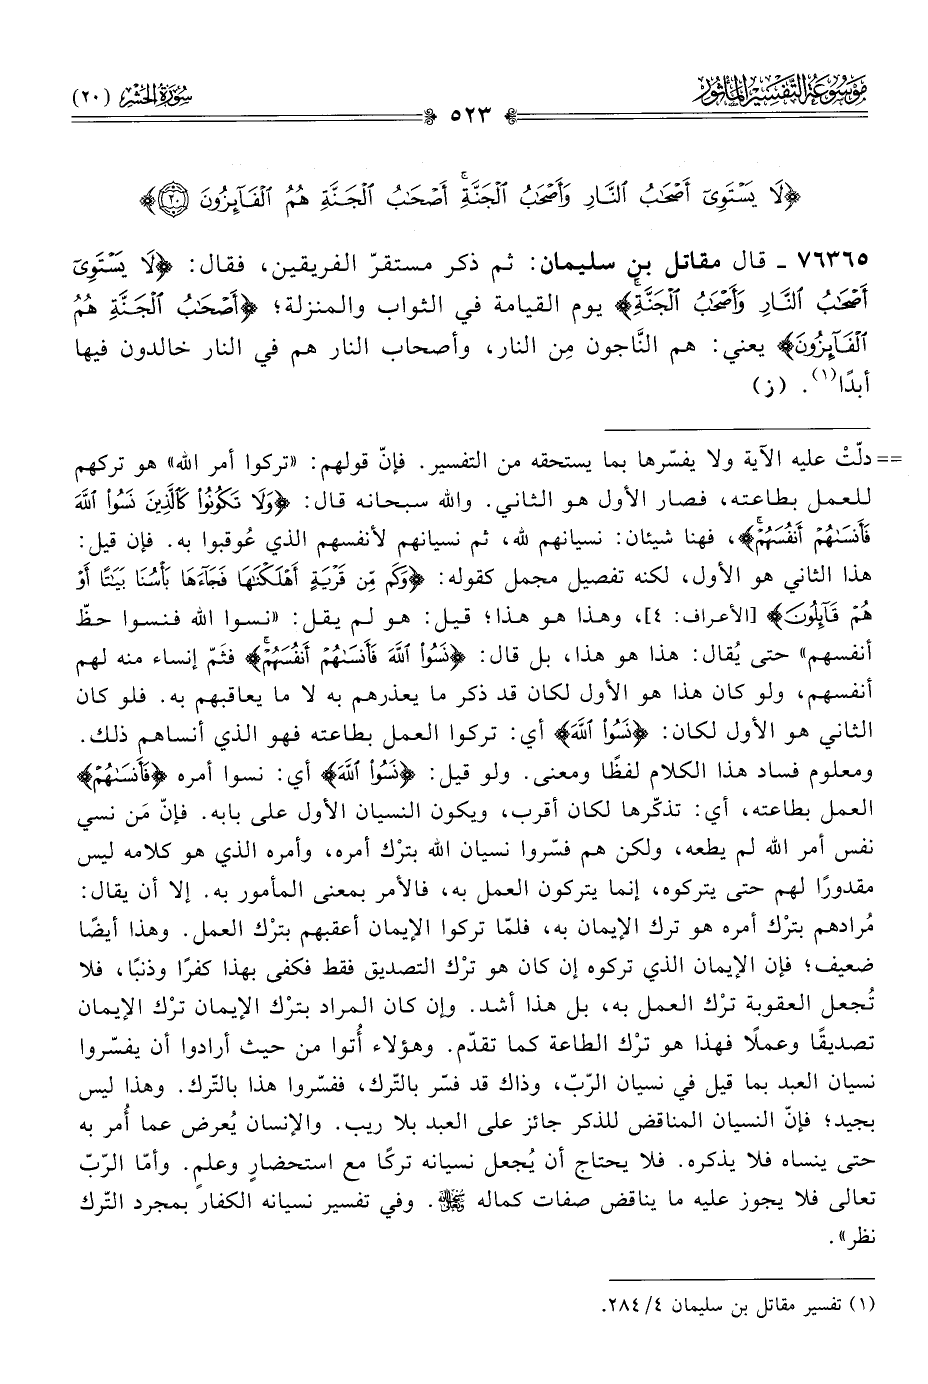 مَوْسُوعَةُ التَّفْسِيرِ المَأْثُور
سُورَةُ الحَشْرِ (٢٠)
٥٢٣
﴿لَا يَسْتَوِيٓ أَصْحَٰبُ ٱلنَّارِ وَأَصْحَٰبُ ٱلْجَنَّةِۚ أَصْحَٰبُ ٱلْجَنَّةِ هُمُ ٱلْفَآئِزُونَ ۝٢٠﴾
٧٦٣٦٥ ـ قال مقاتل بن سليمان: ثم ذكر مستقرّ الفريقين، فقال: ﴿لَا يَسْتَوِيٓ
أَصْحَٰبُ ٱلنَّارِ وَأَصْحَٰبُ ٱلْجَنَّةِۚ﴾ يوم القيامة في الثواب والمنزلة؛ ﴿أَصْحَٰبُ ٱلْجَنَّةِ هُمُ
ٱلْفَآئِزُونَ﴾ يعني: هم النَّاجون مِن النار، وأصحاب النار هم في النار خالدون فيها
أبدًا(١). (ز)
== دلّتْ عليه الآية ولا يفسّرها بما يستحقه من التفسير. فإنّ قولهم: «تركوا أمر الله» هو تركهم
للعمل بطاعته، فصار الأول هو الثاني. والله سبحانه قال: ﴿وَلَا تَكُونُوا۟ كَٱلَّذِينَ نَسُوا۟ ٱللَّهَ
فَأَنسَىٰهُمْ أَنفُسَهُمْۚ﴾، فهنا شيئان: نسيانهم لله، ثم نسيانهم لأنفسهم الذي عُوقبوا به. فإن قيل:
هذا الثاني هو الأول، لكنه تفصيل مجمل كقوله: ﴿وَكَم مِّن قَرْيَةٍ أَهْلَكْنَٰهَا فَجَآءَهَا بَأْسُنَا بَيَٰتًا أَوْ
هُمْ قَآئِلُونَ﴾ [الأعراف: ٤]، وهذا هو هذا؛ قيل: هو لم يقل: «نسوا الله فنسوا حظّ
أنفسهم» حتى يُقال: هذا هو هذا، بل قال: ﴿نَسُوا۟ ٱللَّهَ فَأَنسَىٰهُمْ أَنفُسَهُمْۚ﴾ فثَمّ إنساء منه لهم
أنفسهم، ولو كان هذا هو الأول لكان قد ذكر ما يعذرهم به لا ما يعاقبهم به. فلو كان
الثاني هو الأول لكان: ﴿نَسُوا۟ ٱللَّهَ﴾ أي: تركوا العمل بطاعته فهو الذي أنساهم ذلك.
ومعلوم فساد هذا الكلام لفظًا ومعنى. ولو قيل: ﴿نَسُوا۟ ٱللَّهَ﴾ أي: نسوا أمره ﴿فَأَنسَىٰهُمْ﴾
العمل بطاعته، أي: تذكّرها لكان أقرب، ويكون النسيان الأول على بابه. فإنّ مَن نسي
نفس أمر الله لم يطعه، ولكن هم فسّروا نسيان الله بترْك أمره، وأمره الذي هو كلامه ليس
مقدورًا لهم حتى يتركوه، إنما يتركون العمل به، فالأمر بمعنى المأمور به. إلا أن يقال:
مُرادهم بترْك أمره هو ترك الإيمان به، فلمّا تركوا الإيمان أعقبهم بترْك العمل. وهذا أيضًا
ضعيف؛ فإن الإيمان الذي تركوه إن كان هو ترْك التصديق فقط فكفى بهذا كفرًا وذنبًا، فلا
تُجعل العقوبة ترْك العمل به، بل هذا أشد. وإن كان المراد بترْك الإيمان ترْك الإيمان
تصديقًا وعملًا فهذا هو ترْك الطاعة كما تقدّم. وهؤلاء أُتوا من حيث أرادوا أن يفسّروا
نسيان العبد بما قيل في نسيان الرّبّ، وذاك قد فسّر بالترْك، ففسّروا هذا بالتّرك. وهذا ليس
بجيد؛ فإنّ النسيان المناقض للذكر جائز على العبد بلا ريب. والإنسان يُعرض عما أُمر به
حتى ينساه فلا يذكره. فلا يحتاج أن يُجعل نسيانه تركًا مع استحضارٍ وعلمٍ. وأمّا الرّبّ
تعالى فلا يجوز عليه ما يناقض صفات كماله ﷻ. وفي تفسير نسيانه الكفار بمجرد التّرك
نظر».
(١) تفسير مقاتل بن سليمان ٤/ ٢٨٤.